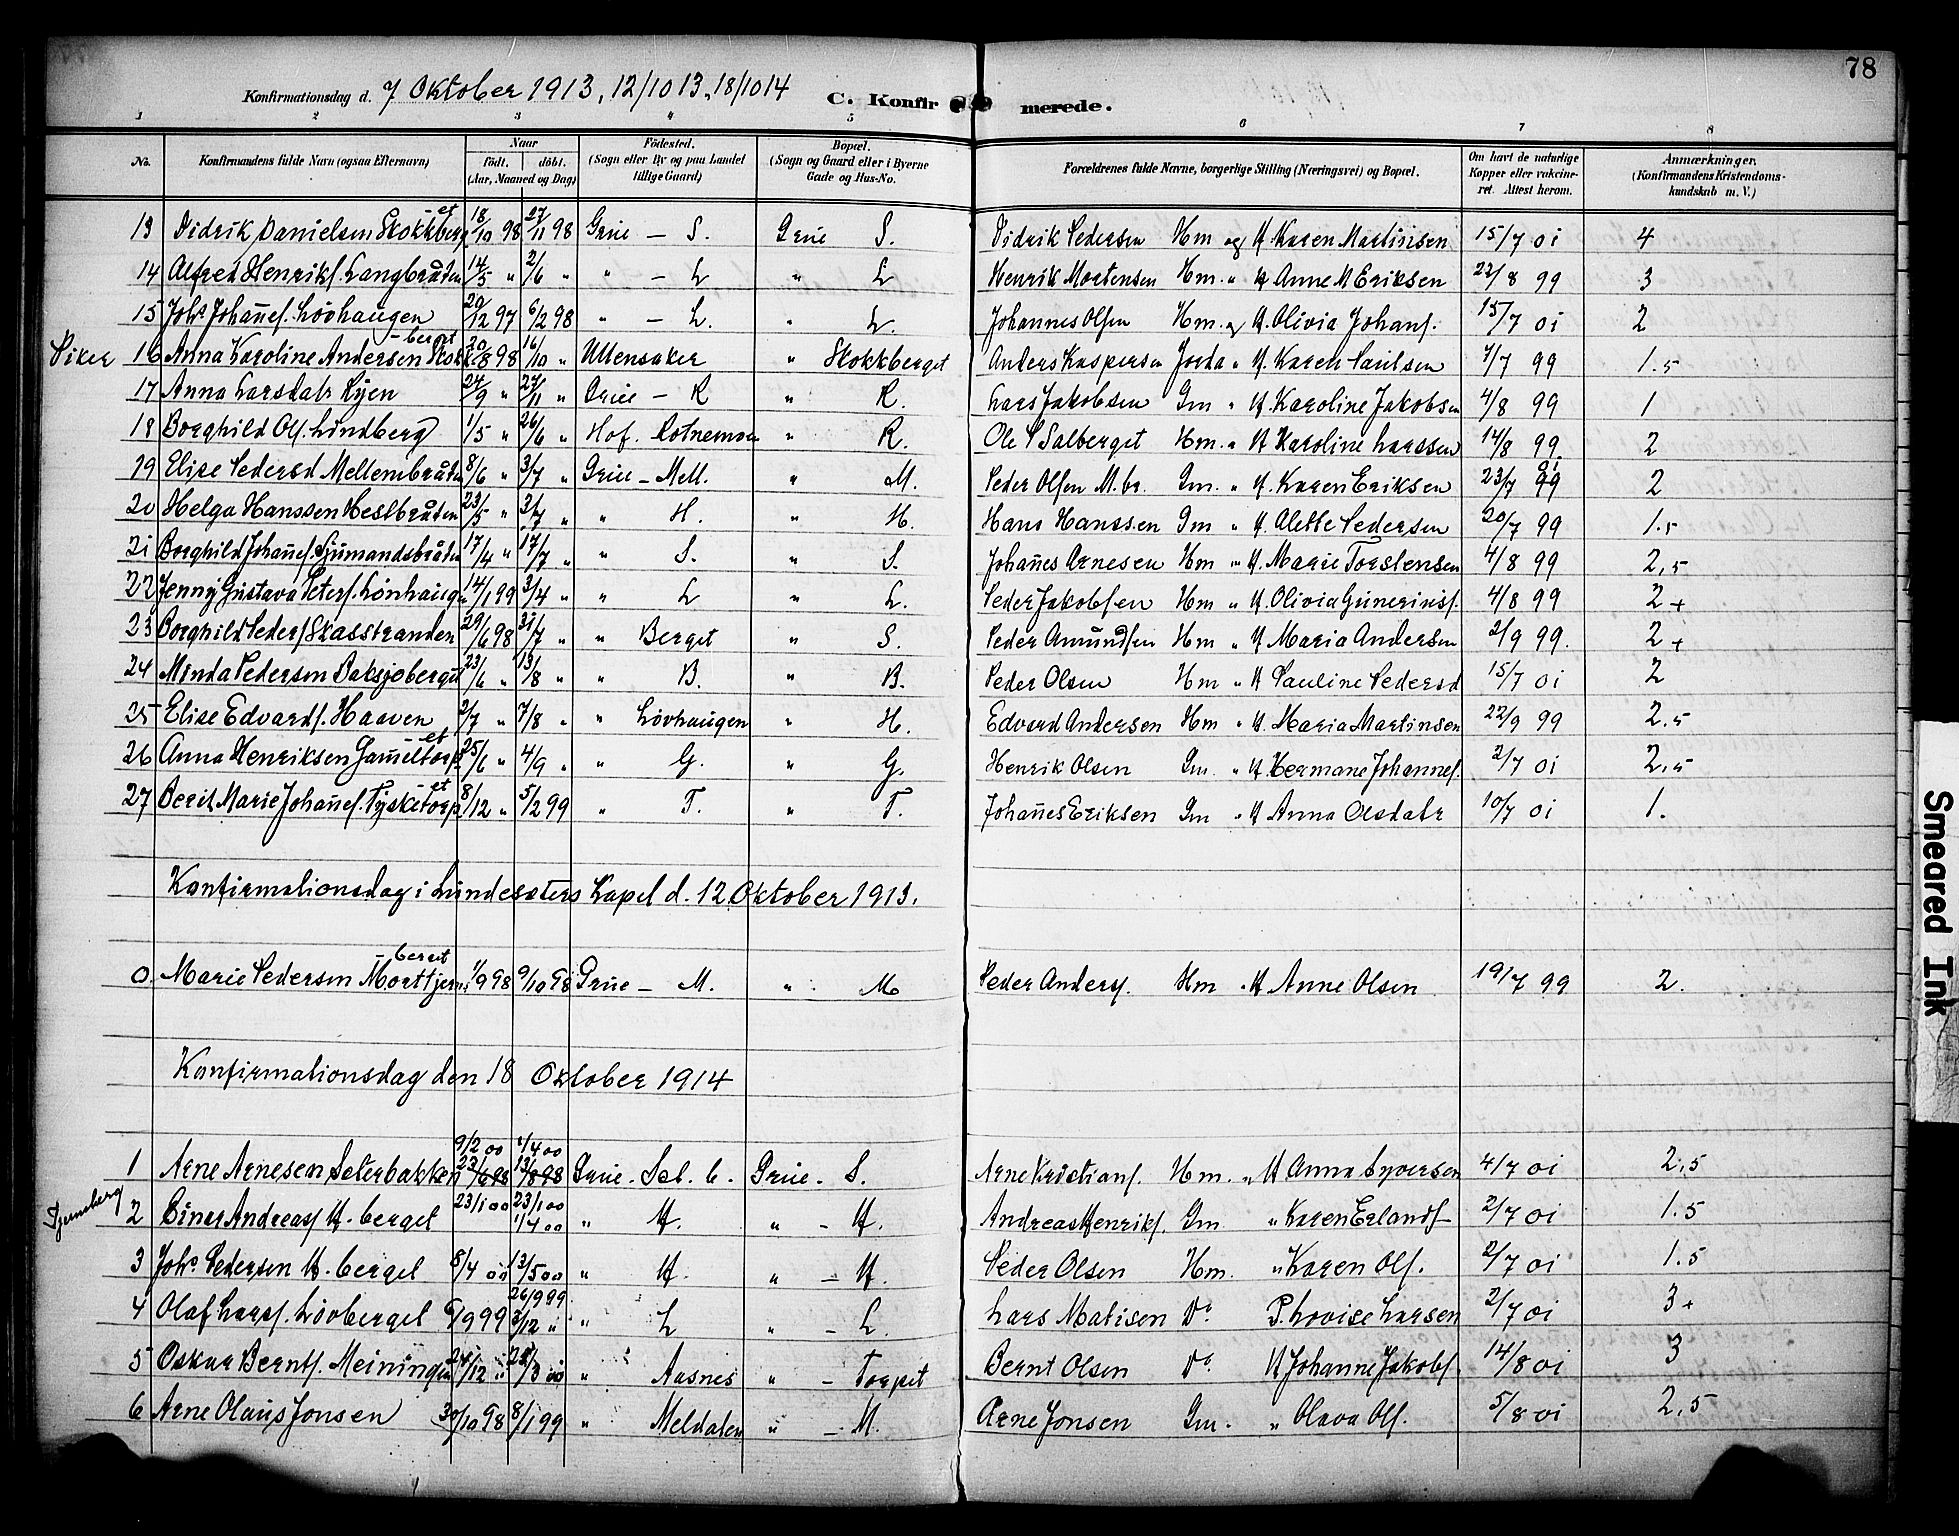 78
Konfirmationsdag d. 7 Oktober 1913, 12/10 13, 18/10 14 C. Konfirmerede.
1 2 3 4 5 6 7 8
No. Konfirmandens fulde Navn (ogsaa Efternavn) Naar født. døbt. (Aar, Maaned og Dag) Fødested. (Sogn eller By og paa Landet tillige Gaard) Bopæl. (Sogn og Gaard eller i Byerne Gade og Hus-No. Forældrenes fulde Navne, borgerlige Stilling (Næringsvei) og Bopæl. Om havt de naturlige Kopper eller vakcineret. Attest herom. Anmærkninger. (Konfirmandens Kristendomskundskab m. V.)
13 Didrik Danielsen Skokkberg-et 18/10 98 27/11 98 Grue — S. Grue S. Didrik Pedersen Hm og H. Karen Martinsen 15/7 01 4
14 Alfred Henriks. Langbråten 14/5 " 2/6 " " — L " L Henrik Mortensen Hm. " H Anne M Eriksen 22/8 99 3
15 Johs Johañes. Lövhaugen 20/12 97 6/2 98 " — L. " L. Johannes Olsen Hm. og H. Olivia Johans. 15/7 01 2
16 Anna Karoline Andersen Skokk-berget 20/8 98 16/10 " Ullensaker " Skokkberget Anders Kaspersen Jorda " H. Karen Paulsen 7/7 99 1.5
17 Anna Larsdatr Ryen 24/9 " 27/11 " Grue — R " R. Lars Jakobsen Gm " H. Karoline Jakobsen 4/8 99 1
18 Borghild Ols. Lindberg 1/5 " 26/6 " Hof. Rotnemoen " R. Ole P Salberget Hm. " H Karoline Larssen 14/8 99. 2
19 Elise Pedersd Mellembråten 8/6 " 3/7 " Grue — Mell. " M. Peder Olsen M.br. Gm. " H. Karen Eriksen 23/7 99 01 2
20 Helga Hanssen Heslbråten 23/5 " 3/7 " " H. " H. Hans Hanssen Gm " H. Alette Pedersen 20/7 99 1.5
21 Borghild Johañes. Sjumandsbråten 17/4 " 17/7 " " S. " S. Johañes Arnesen Hm " H. Marie Torstensen 4/8 99 2,5
22 Jenny Gustava Peters. Lönhaugen 14/1 99 3/4 " " L " L. Peder Jakobsen Hm " H. Olivia Gunerius. 4/8 99 2+
23 Borghild Peders. Skasstranden 29/6 98 31/7 " " Berget " S. Peder Amundsen Hm " H Maria Andersen 2/9 99 2+
24 Minda Pedersen Baksjöberget 23/6 " 13/8 " " B. " B. Peder Olsen Hm " H Pauline Pedersd 15/7 01 2
25 Elise Edvards. Haaven 2/7 " 7/8 " " Lövhaugen " H. Edvard Andersen Hm " H Maria Martinsen 22/9 99 2.5
26 Anna Henriksen Gameltorp-et 25/6 " 4/9 " " G. " G. Henrik Olsen Gm. " H Hermane Johannes. 2/7 01 2,5
27 Berit Marie Johañes. Tysketorp-et 8/12 " 5/2 99 " T. " T. Johañes Eriksen Gm " H Anna Olsdatr 10/7 01 1.
Konfirmationsdag i Lundersæters Kapel d. 12 Oktober 1913.
0. Marie Pedersen Morttjern-berget 1/9 98 9/10 98 Grue — M. " M Peder Anders. Hm " H Anne Olsen 19/7 99 2.
Konfirmationsdag den 18 Oktober 1914
9/2 00 1/4 00
1 Arne Arnesen Seterbakken 23/6 98 13/8 98 Grue - Set. b. Grue - S. Arne Kristians. Hm. " H Anna Syversen 4/7 01 2,5
2 Einar Andreass H. berget 23/1 00 23/1 00 1/4 00 " H. " - H. Andreas Henriks. Gm " Karen Erlands 2/7 01 1.5
3 Johs Pedersen H. berget 8/4 00 13/5 00 " H. " - H. Peder Olsen Hm. " Karen Ols. 2/7 01 1.5
26/9 99
4 Olaf Larss. Lövberget 6/9 99 3/12 " " L " - L. Lars Matisen Do P. Lovise Larsen 2/7 01 3+
5 Oskar Bernts. Meiningen 24/12 " " Aasnes " - Torpet Bernt Olsen Do. H Johanne Jakobs. 14/8 01 3
6 Arne Olaus Jonsen 30/10 98 8/1 99 " Meldalen " - M. Arne Jonsen Gm. " Olava Ols. 5/8 01 2,5
Smeared Ink